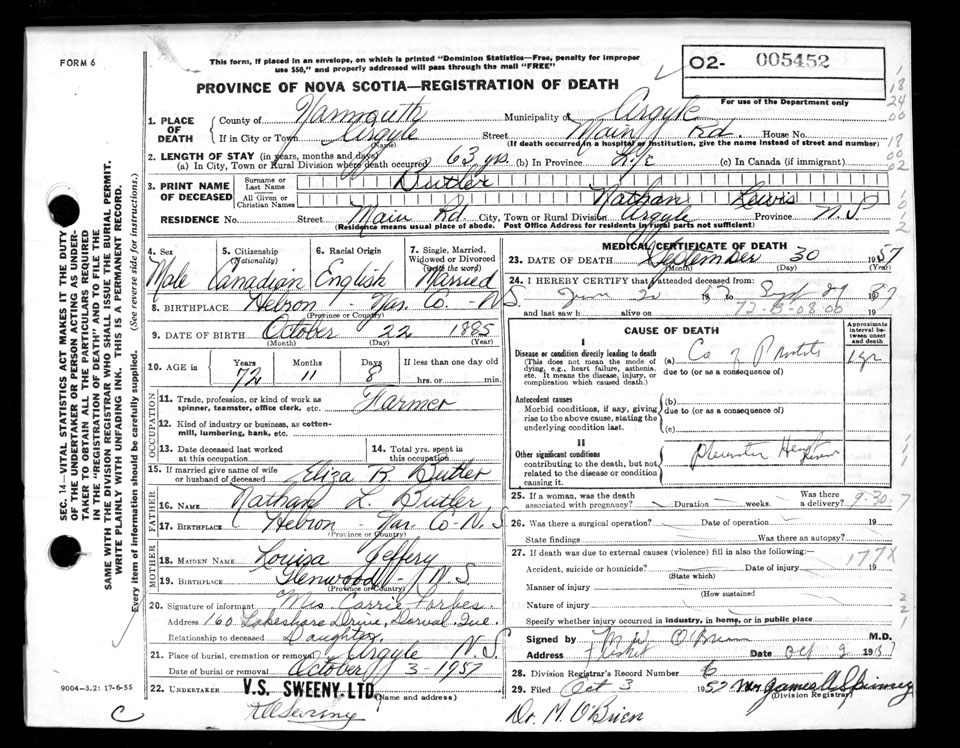 FORM 6
This form, if placed in an envelope, on which is printed "Dominion Statistics—Free, penalty for improper
use $50," and properly addressed will pass through the mail "FREE"
O2- 005452
For use of the Department only
PROVINCE OF NOVA SCOTIA—REGISTRATION OF DEATH
1. PLACE OF DEATH
County of Yarmouth Municipality of Argyle
If in City or Town Argyle (Name) Street Main Rd. House No.
(If death occurred in a hospital or institution, give the name instead of street and number)
2. LENGTH OF STAY (in years, months and days)
(a) In City, Town or Rural Division where death occurred 63 yrs. (b) In Province Life (c) In Canada (if immigrant)
3. PRINT NAME OF DECEASED
Surname or Last Name Butler
All Given or Christian Names Nathan Lewis
RESIDENCE No. Street Main Rd. City, Town or Rural Division Argyle Province N.S.
(Residence means usual place of abode. Post Office Address for residents in rural parts not sufficient)
4. Sex
Male
5. Citizenship (Nationality)
Canadian
6. Racial Origin
English
7. Single, Married, Widowed or Divorced (write the word)
Married
8. BIRTHPLACE Hebron - Yar. Co. - N.S.
(Province or Country)
9. DATE OF BIRTH October 22 1885
(Month) (Day) (Year)
10. AGE in Years Months Days If less than one day old
72 11 8 hrs. or min.
OCCUPATION
11. Trade, profession, or kind of work as
spinner, teamster, office clerk, etc. Farmer
12. Kind of industry or business, as cotton-
mill, lumbering, bank, etc.
13. Date deceased last worked
at this occupation
14. Total yrs. spent in
this occupation
15. If married give name of wife
or husband of deceased Eliza R. Butler
FATHER
16. NAME Nathan L. Butler
17. BIRTHPLACE Hebron - Yar. Co - N.S.
(Province or Country)
MOTHER
18. MAIDEN NAME Louisa Jeffery
19. BIRTHPLACE Glenwood - N.S.
(Province or Country)
20. Signature of informant Mrs. Carrie Forbes.
Address 160 Lakeshore Drive, Dorval, Que.
Relationship to deceased Daughter.
21. Place of burial, cremation or removal Argyle N.S.
Date of burial or removal October 3-1957
22. UNDERTAKER V.S. SWEENY LTD.
(Name and address)
9004-3.2: 17-6-55
C
MEDICAL CERTIFICATE OF DEATH
23. DATE OF DEATH September 30 1957
(Month) (Day) (Year)
24. I HEREBY CERTIFY that I attended deceased from:
June 1957 to Sept 29 57
and last saw h alive on 19
CAUSE OF DEATH
Approximate interval between onset and death
I
Disease or condition directly leading to death
(This does not mean the mode of
dying, e.g., heart failure, asthenia,
etc. It means the disease, injury, or
complication which caused death.)
(a) Ca of Prostate 1 yr
due to (or as a consequence of)
Antecedent causes
Morbid conditions, if any, giving
rise to the above cause, stating the
underlying condition last.
(b)
due to (or as a consequence of)
(c)
II
Other significant conditions
contributing to the death, but not
related to the disease or condition
causing it.
25. If a woman, was the death
associated with pregnancy? Duration weeks. Was there a delivery?
9-30-7
26. Was there a surgical operation? Date of operation 19
State findings Was there an autopsy?
27. If death was due to external causes (violence) fill in also the following:—
177X
Accident, suicide or homicide? Date of injury 19
(State which)
Manner of injury
(How sustained)
Nature of injury
Specify whether injury occurred in industry, in home, or in public place
Signed by M. W. O'Brien M.D.
Address Date Oct 2 1957
28. Division Registrar's Record No. 6
29. Filed Oct 3 1957
(Division Registrar)
Dr. M. O'Brien
SEC. 14—VITAL STATISTICS ACT MAKES IT THE DUTY
OF THE UNDERTAKER OR PERSON ACTING AS UNDER-
TAKER TO OBTAIN ALL THE PARTICULARS REQUIRED
IN THE "REGISTRATION OF DEATH" AND TO FILE THE
SAME WITH THE DIVISION REGISTRAR WHO SHALL ISSUE THE BURIAL PERMIT.
WRITE PLAINLY WITH UNFADING INK. THIS IS A PERMANENT RECORD.
Every item of information should be carefully supplied. (See reverse side for instructions.)